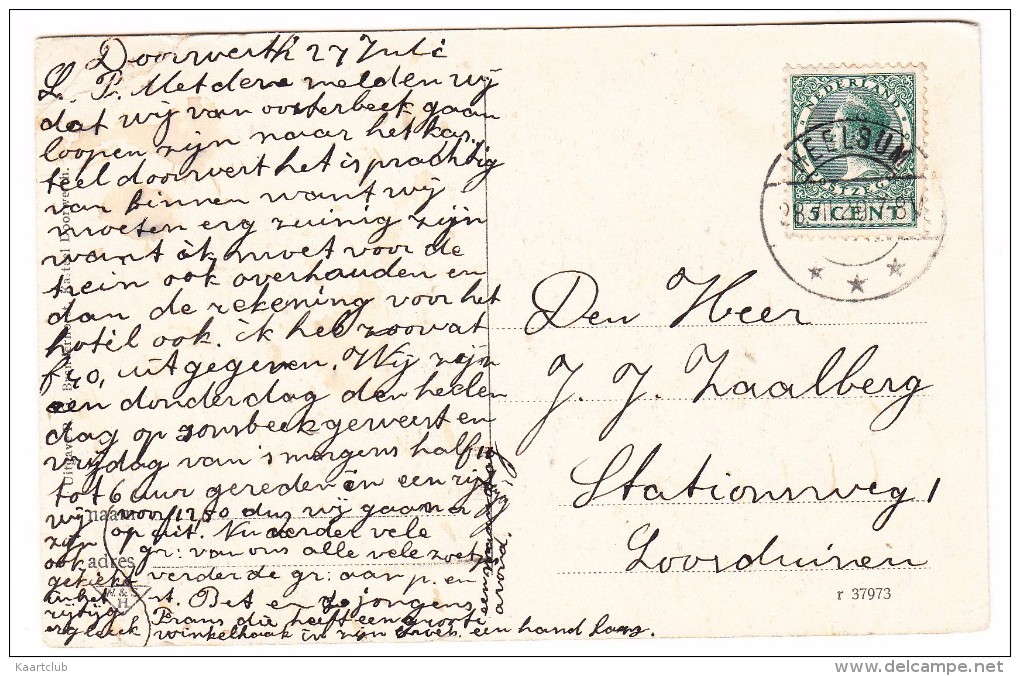 Doorwerth 27 Juli
L. P. Met deze melden wij
dat wij van oosterbeek gaan
loopen zijn naar het kas
teel doorwert het is prachtig
van binnen want wij
moeten erg zuinig zijn
want ik moet voor de
trein ook overhouden en
dan de rekening voor het
hotil ook. ik heb zoowat
f40, uitgegeven. Wij zijn
een donderdag den heelen
dag op sonsbeek geweest en
vrijdag van s'morgens half 10
tot 6 uur gereden in een rij
voor f12.50 dus wij gaan er
op uit. Nu verder vele
gr: van ons alle vele zoet
verder de gr: aan p. en
t. Bet en de jongens
Frans die heeft een groote
winkelhaak in zijn broek een hand lang.
wij
zijn
ook
in het
avond.
naam
adres
W. & S.
H.
Kasteel Doorwerth.
NEDERLAND
POSTZEGEL
5 CENT
HEELSUM
Den Heer
J. J. Zaalberg
Stationsweg 1
Loosduinen
r 37973
Kaartclub
http://www.delcampe.net